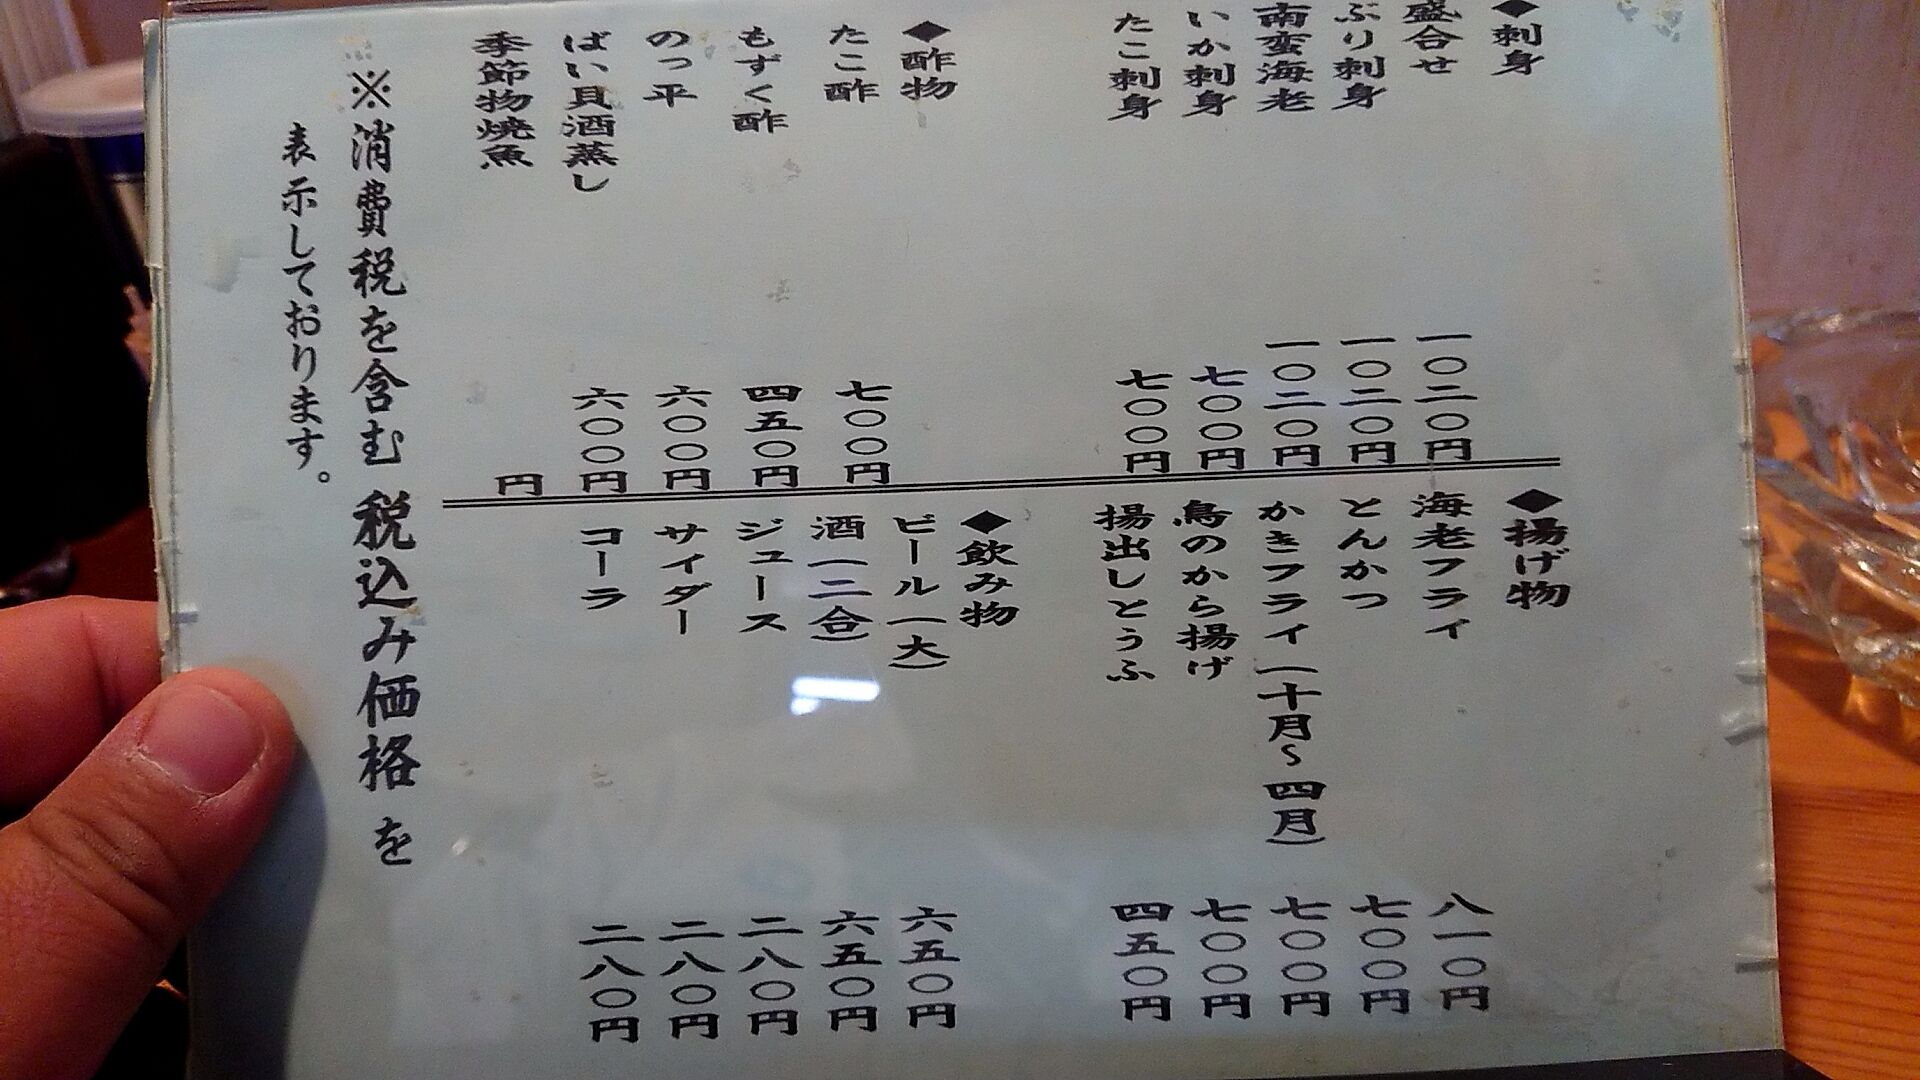 ◆刺身
盛合せ 一〇二〇円
ぶり刺身 一〇二〇円
南蛮海老 一〇二〇円
いか刺身 七〇〇円
たこ刺身 七〇〇円
◆酢物
たこ酢 七〇〇円
もずく酢 四五〇円
のっ平 六〇〇円
ばい貝酒蒸し 六〇〇円
季節物焼魚 円
◆揚げ物
海老フライ 八一〇円
とんかつ 七〇〇円
かきフライ(十月～四月) 七〇〇円
鳥のから揚げ 七〇〇円
揚出しとうふ 四五〇円
◆飲み物
ビール(大) 六五〇円
酒(二合) 六五〇円
ジュース 二八〇円
サイダー 二八〇円
コーラ 二八〇円
※消費税を含む 税込み価格 を
表示しております。